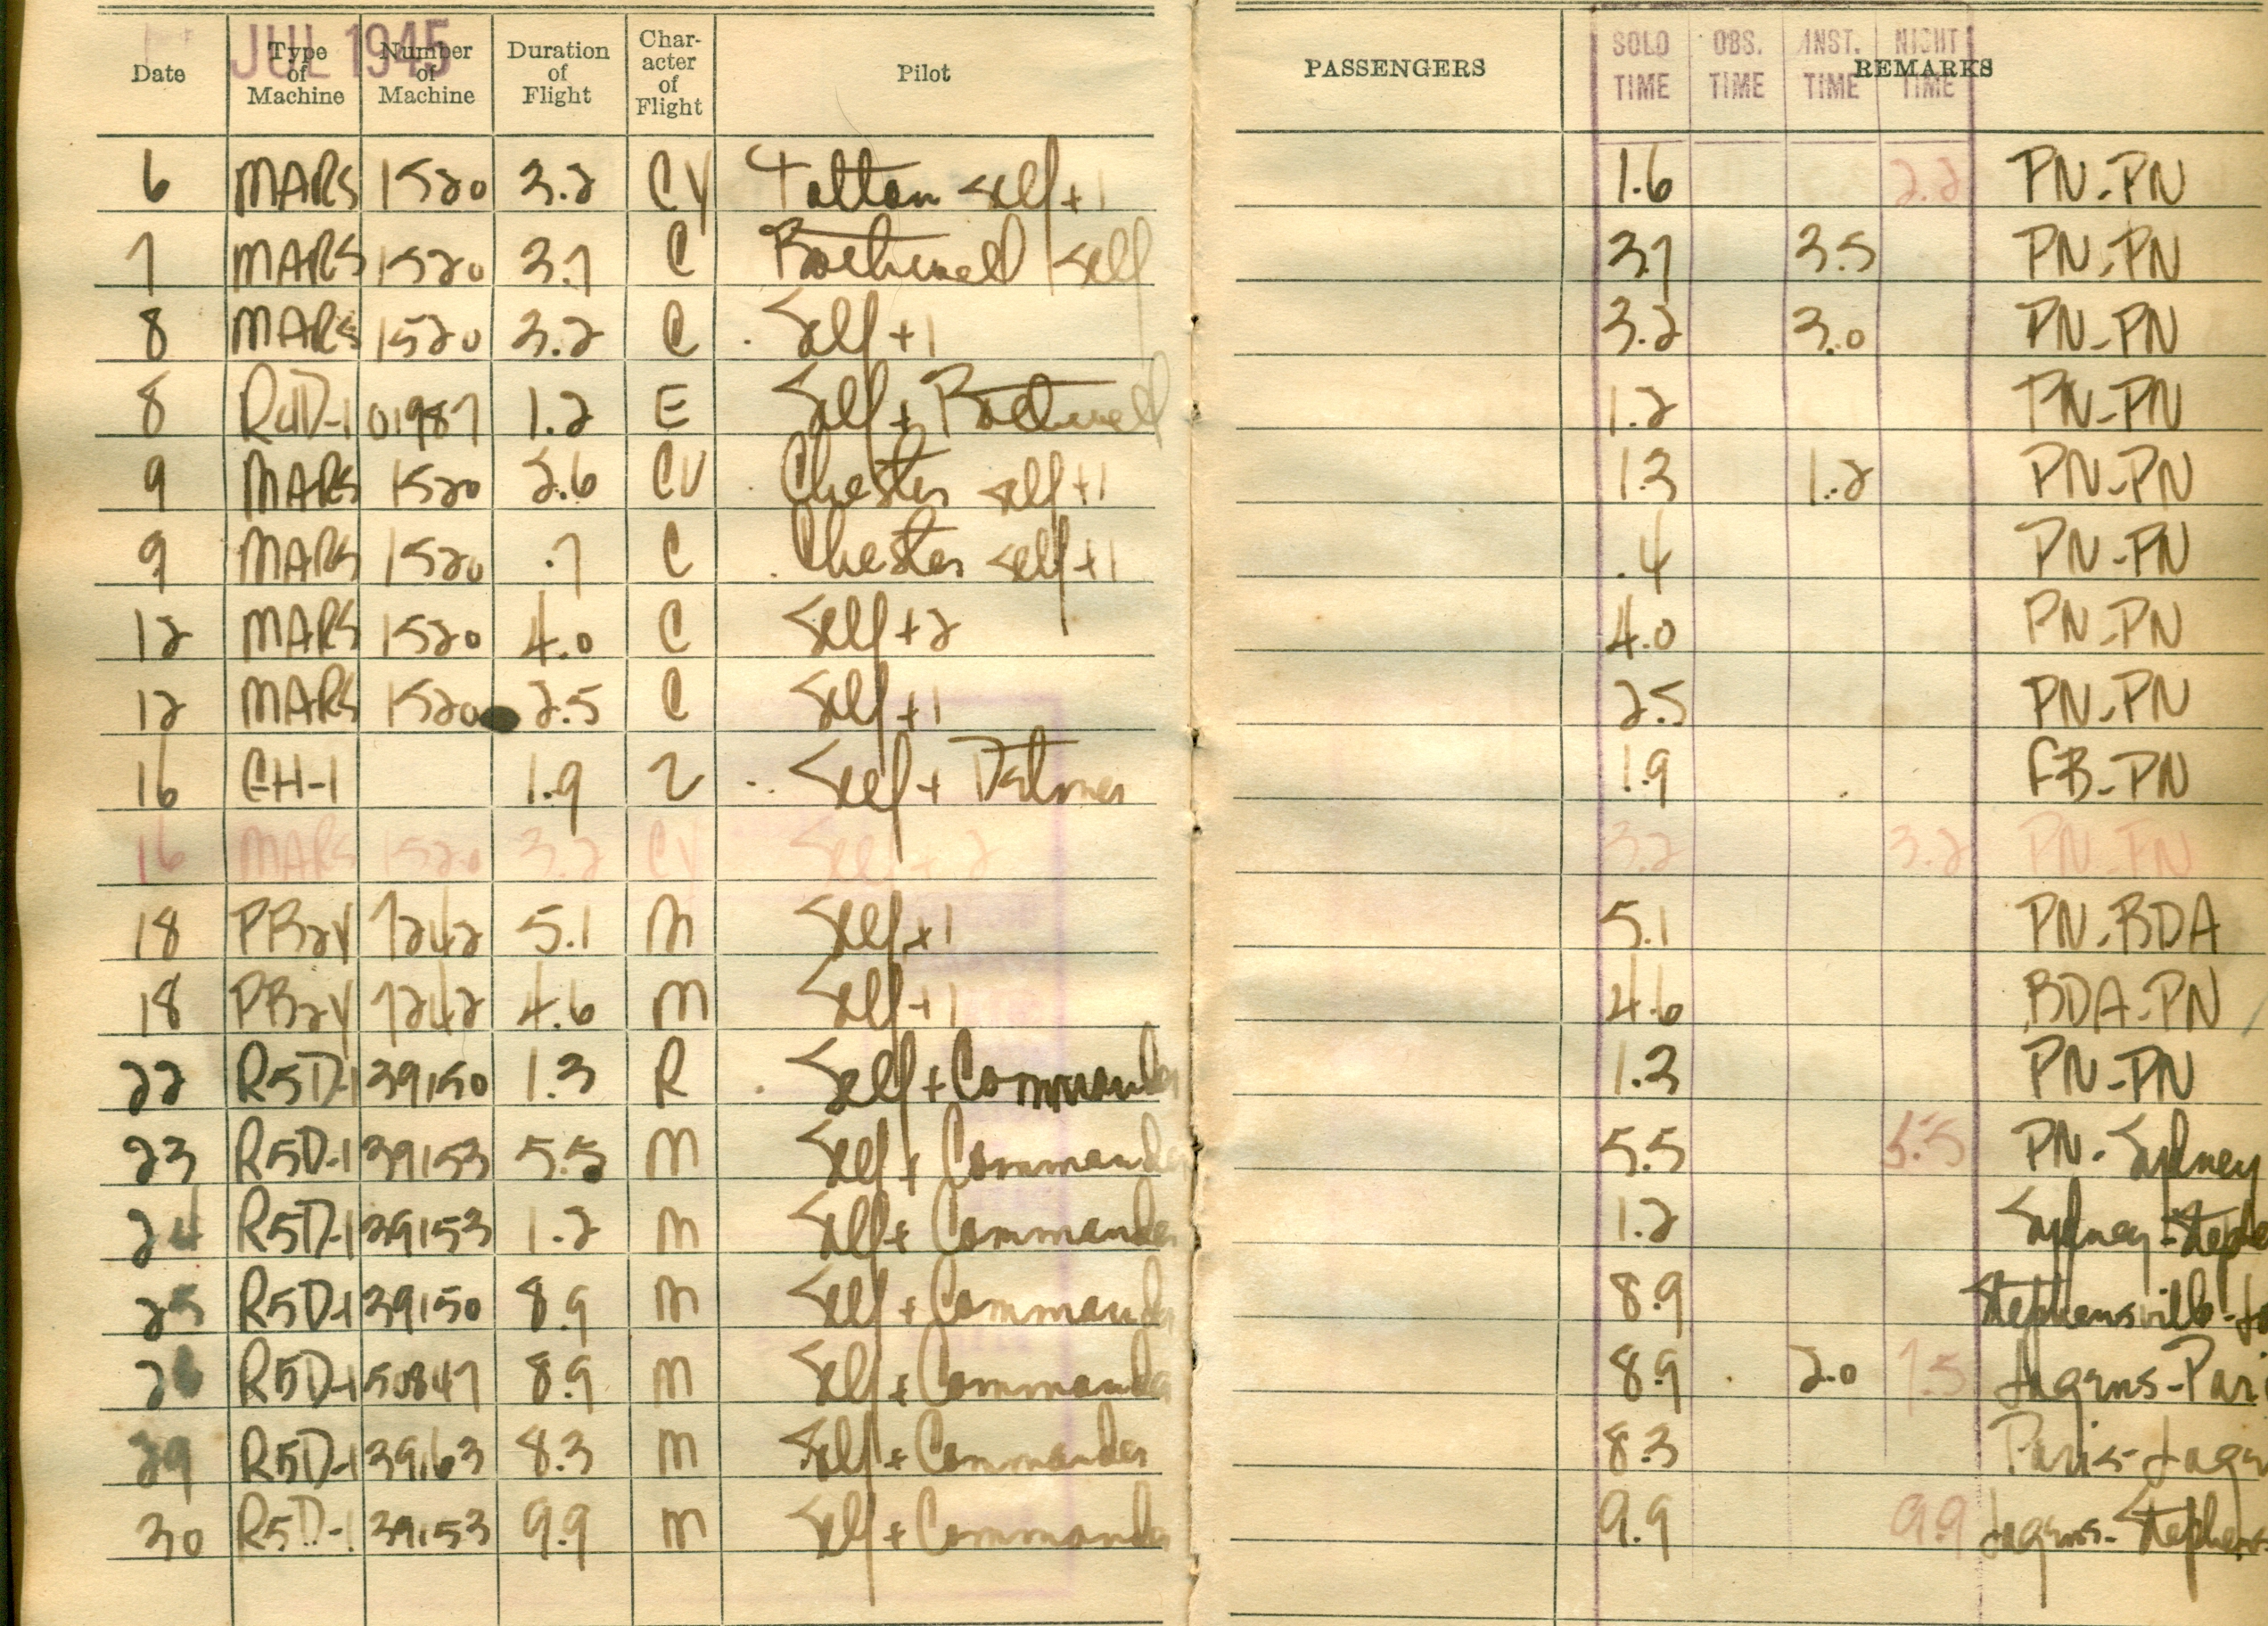 JUL 1945
Date Type of Machine Number of Machine Duration of Flight Char-acter of Flight Pilot PASSENGERS SOLO TIME OBS. TIME INST. TIME NIGHT TIME REMARKS
6 MARS 1520 3.2 CY self+1 1.6 2.2 PN-PN
7 MARS 1520 3.7 C Bothwell self 3.7 3.5 PN-PN
8 MARS 1520 3.2 C Self+1 3.2 3.0 PN-PN
8 R4D-1 01987 1.2 E Self+Bothwell 1.2 PN-PN
9 MARS 1520 2.6 Chester self+1 1.3 1.2 PN-PN
9 MARS 1520 .7 C Chester self+1 .4 PN-PN
12 MARS 1520 4.0 C Self+2 4.0 PN-PN
12 MARS 1520 2.5 C Self+1 2.5 PN-PN
16 1.9 Self+ 1.9 PN
16 MARS 1520 3.2 CY Self+2 3.2 3.2 PN-PN
18 PB2Y 7242 5.1 M Self+1 5.1 PN-BDA
18 PB2Y 7242 4.6 M Self+1 4.6 BDA-PN
22 R5D-1 39150 1.3 R Self+Commander 1.3 PN-PN
23 R5D-1 39153 5.5 M Self+Commander 5.5 5.5 PN-Sydney
24 R5D-1 39153 1.2 M Self+Commander 1.2 Sydney-Stephe
25 R5D-1 39150 8.9 M Self+Commander 8.9 Stephensville-
26 R5D-1 50847 8.9 M Self+Commander 8.9 2.0 7.5 Lagens-Pari
29 R5D-1 39163 8.3 M Self+Commander 8.3 Paris-Lage
30 R5D-1 39153 9.9 M Self+Commander 9.9 9.9 Lagens-Stephens